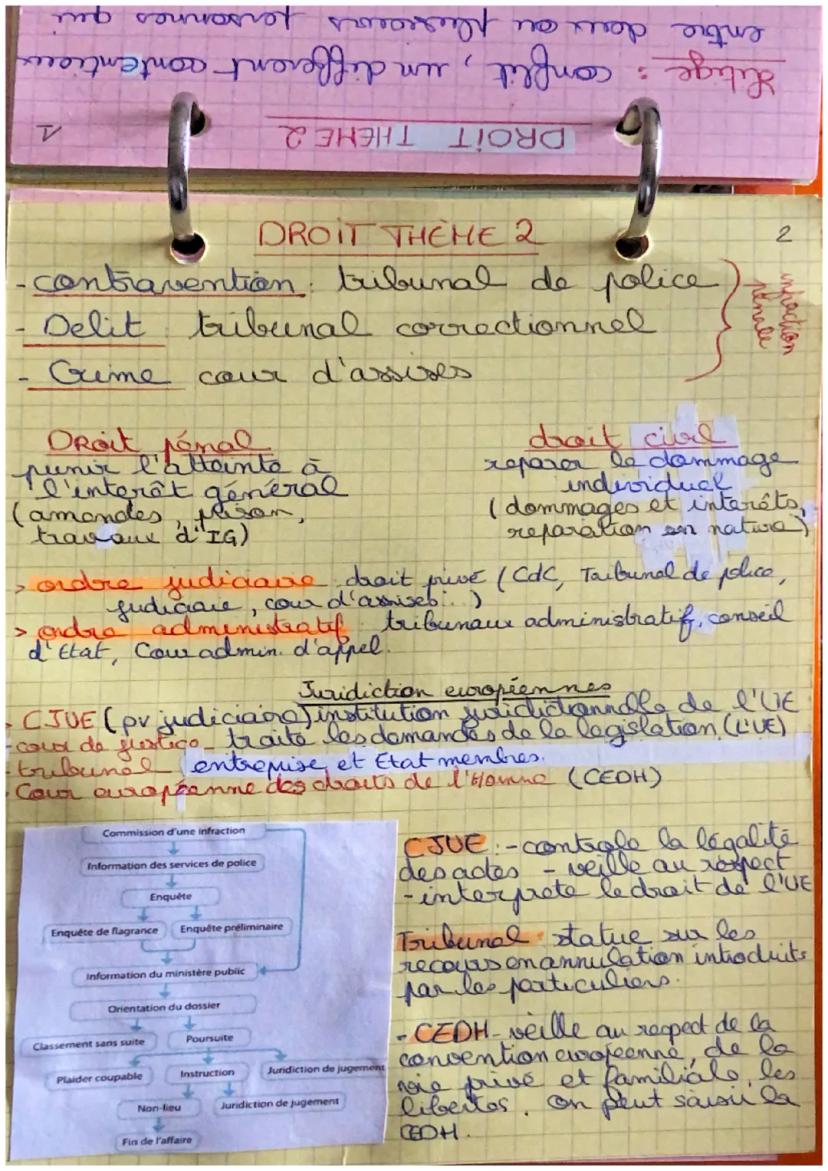 DROIT THEME 2
1
Litige : conflit, un différent contentieux
entre deux ou plusieurs personnes qui
DROIT THÈME 2
2
- contravention : tribunal de police
- Delit tribunal correctionnel
- Crime cour d'assises
infraction
pénale
DRoit pénal
punir l'atteinte à
l'interêt général
(amendes, prison,
travaux d'IG)
droit civil
reparer le dommage
individuel
(dommages et interêts,
reparation en nature)
> ordre judiciaire droit privé (CdC, Tribunal de police,
judiciaie, cour d'assises...)
> ordre administratif tribunaux administratif, conseil
d'Etat, Cour admin. d'appel.
Juridiction européennes
- CJUE (pv judiciaire) institution juridictionnelle de l'UE
- cour de justice - traite les demandes de la legislation (L'UE)
- tribunal entreprise et Etat membres.
- Cour européenne des droits de l'Homme (CEDH)
Commission d'une infraction
Information des services de police
Enquête
Enquête de flagrance
Enquête préliminaire
Information du ministère public
Orientation du dossier
Classement sans suite
Poursuite
Plaider coupable
Instruction
Juridiction de jugement
Non-lieu
Juridiction de jugement
Fin de l'affaire
CJUE : - controle la légalité
des actes - veille au respect
- interprete le droit de l'UE
Tribunal statue sur les
recours en annulation introduits
par les particuliers.
- CEDH - veille au respect de la
convention européenne, de la
vie privé et familiale, les
libertés. On peut saisir la
CEDH.